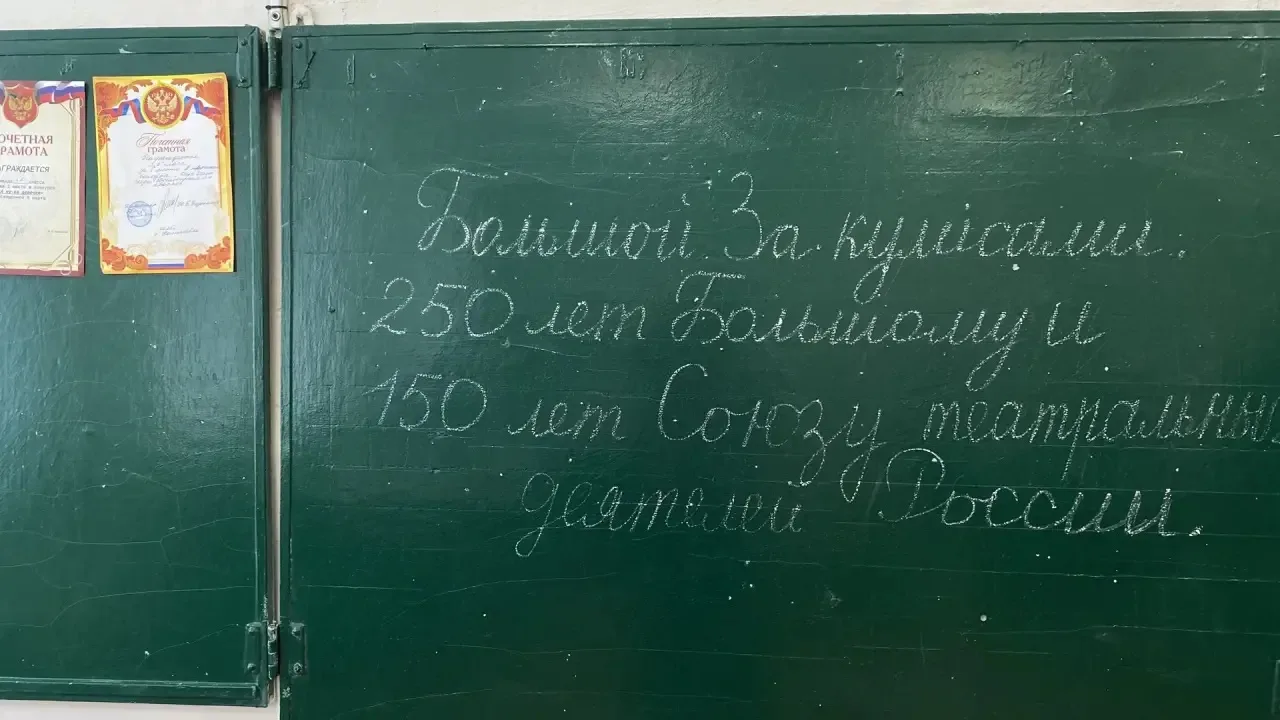 ПОЧЕТНАЯ
ГРАМОТА
НАГРАЖДАЕТСЯ
Почетная
грамота
Большой. За кулисами.
250 лет Большому и
150 лет Союзу театральных
деятелей России.